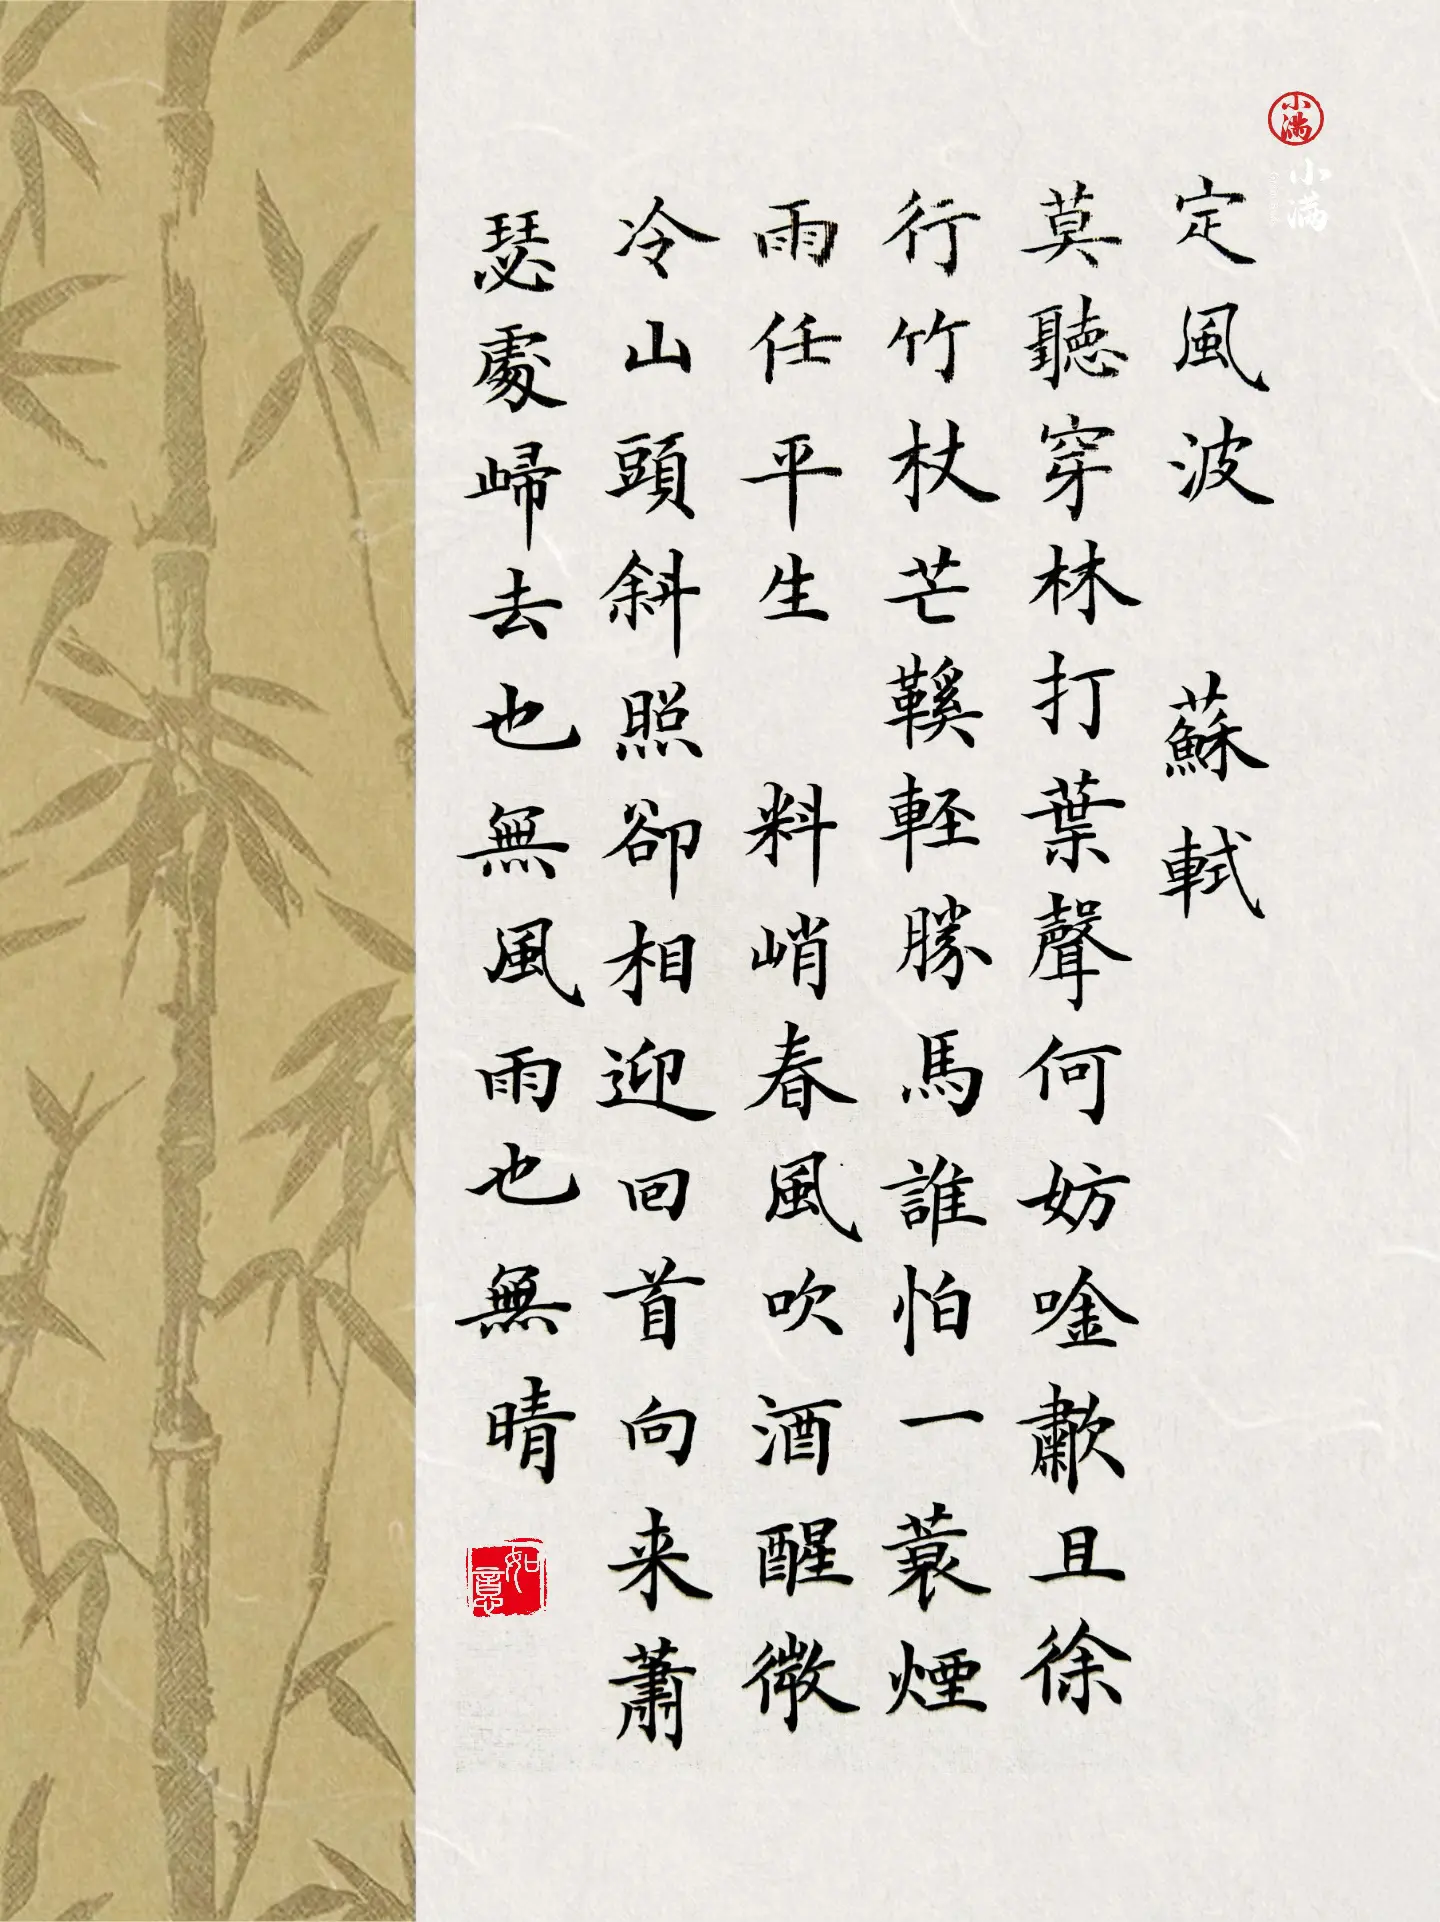 小满
小满
定風波 蘇軾
莫聽穿林打葉聲何妨唫歗且徐
行竹杖芒鞵輕勝馬誰怕一蓑煙
雨任平生 料峭春風吹酒醒微
冷山頭斜照卻相迎回首向来蕭
瑟處歸去也無風雨也無晴
如意